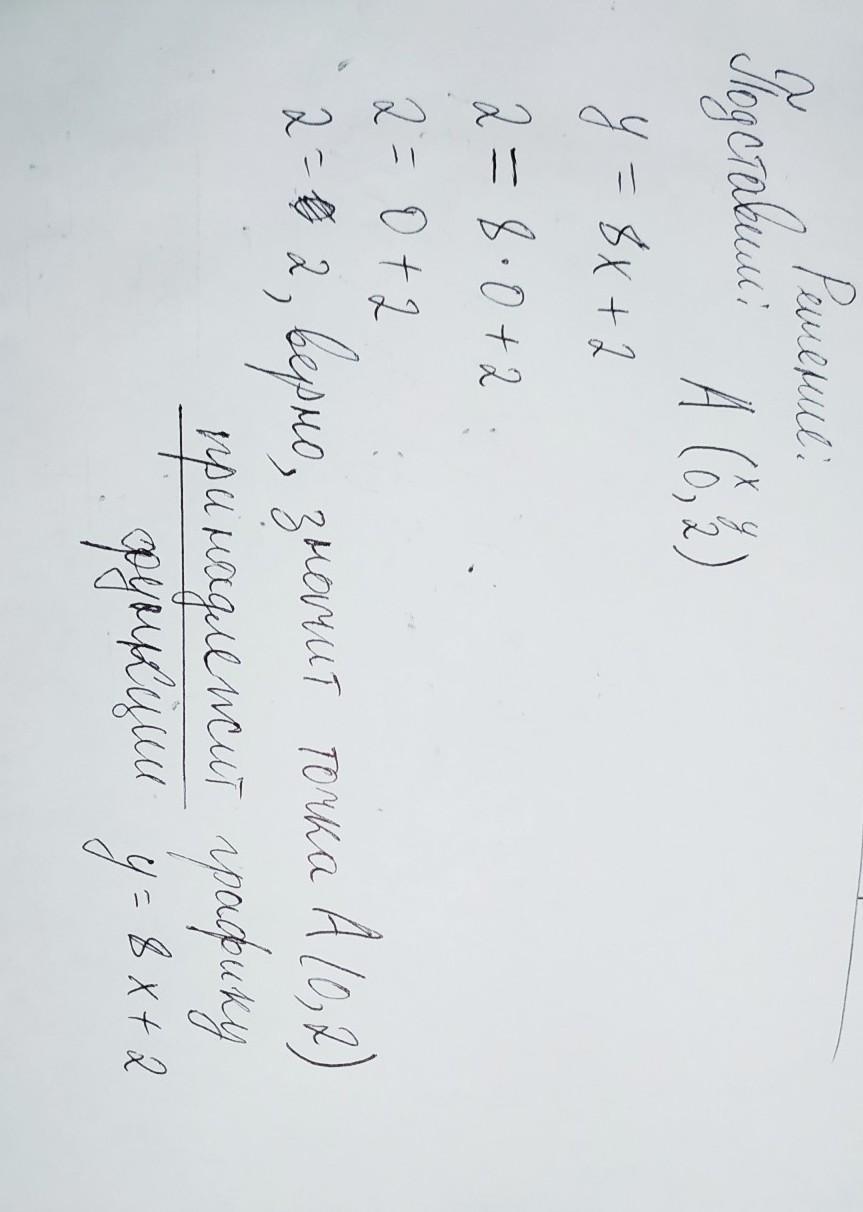 Решение:
Подставим: A (0, 2)
x y
y = 8x + 2
2 = 8 · 0 + 2
2 = 0 + 2
2 = 2, верно, значит точка A (0, 2)
принадлежит графику
функции y = 8x + 2